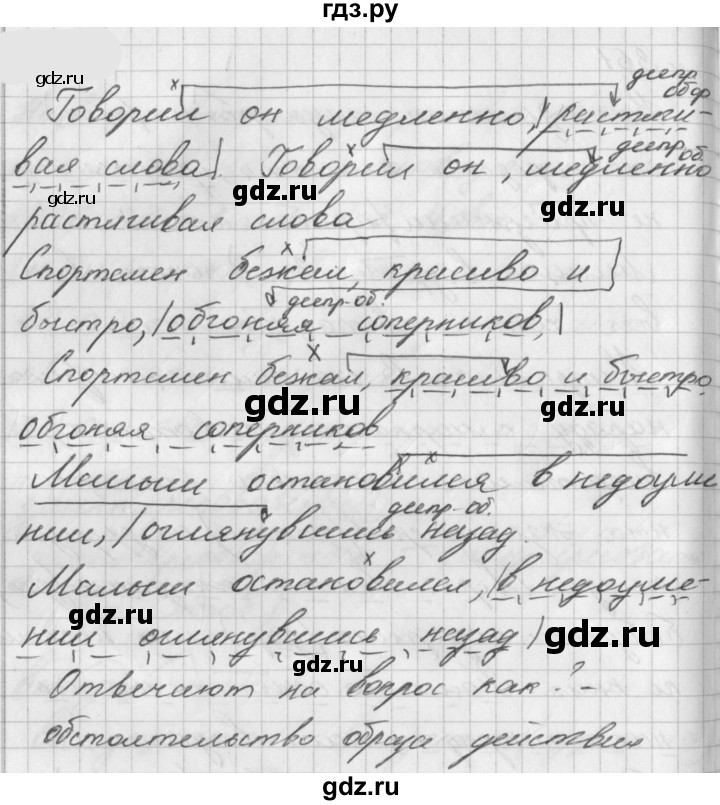 гдз.ру
gdz.ru
х
дсепр
обр
Говорил он медленно, растяги-
дсепр. об.
вая слова. Говорил он, медленно
х
gdz.ru
gdz.ru
растягивая слова
х
Спортсмен бежал, красиво и
деепр-об.
быстро, обгоняя соперников,
х
Спортсмен бежал, красиво и быстро
gdz.ru
gdz.ru
обгоняя соперников
х
Малыш остановился в недоуме
деепр-об.
нии, оглянувшись назад.
х
Малыш остановился, в недоуме-
gdz.ru
нии оглянувшись назад
gdz.ru
Отвечают на вопрос как? -
обстоятельство образа действия
gdz.ru
gdz.ru
gdz.ru